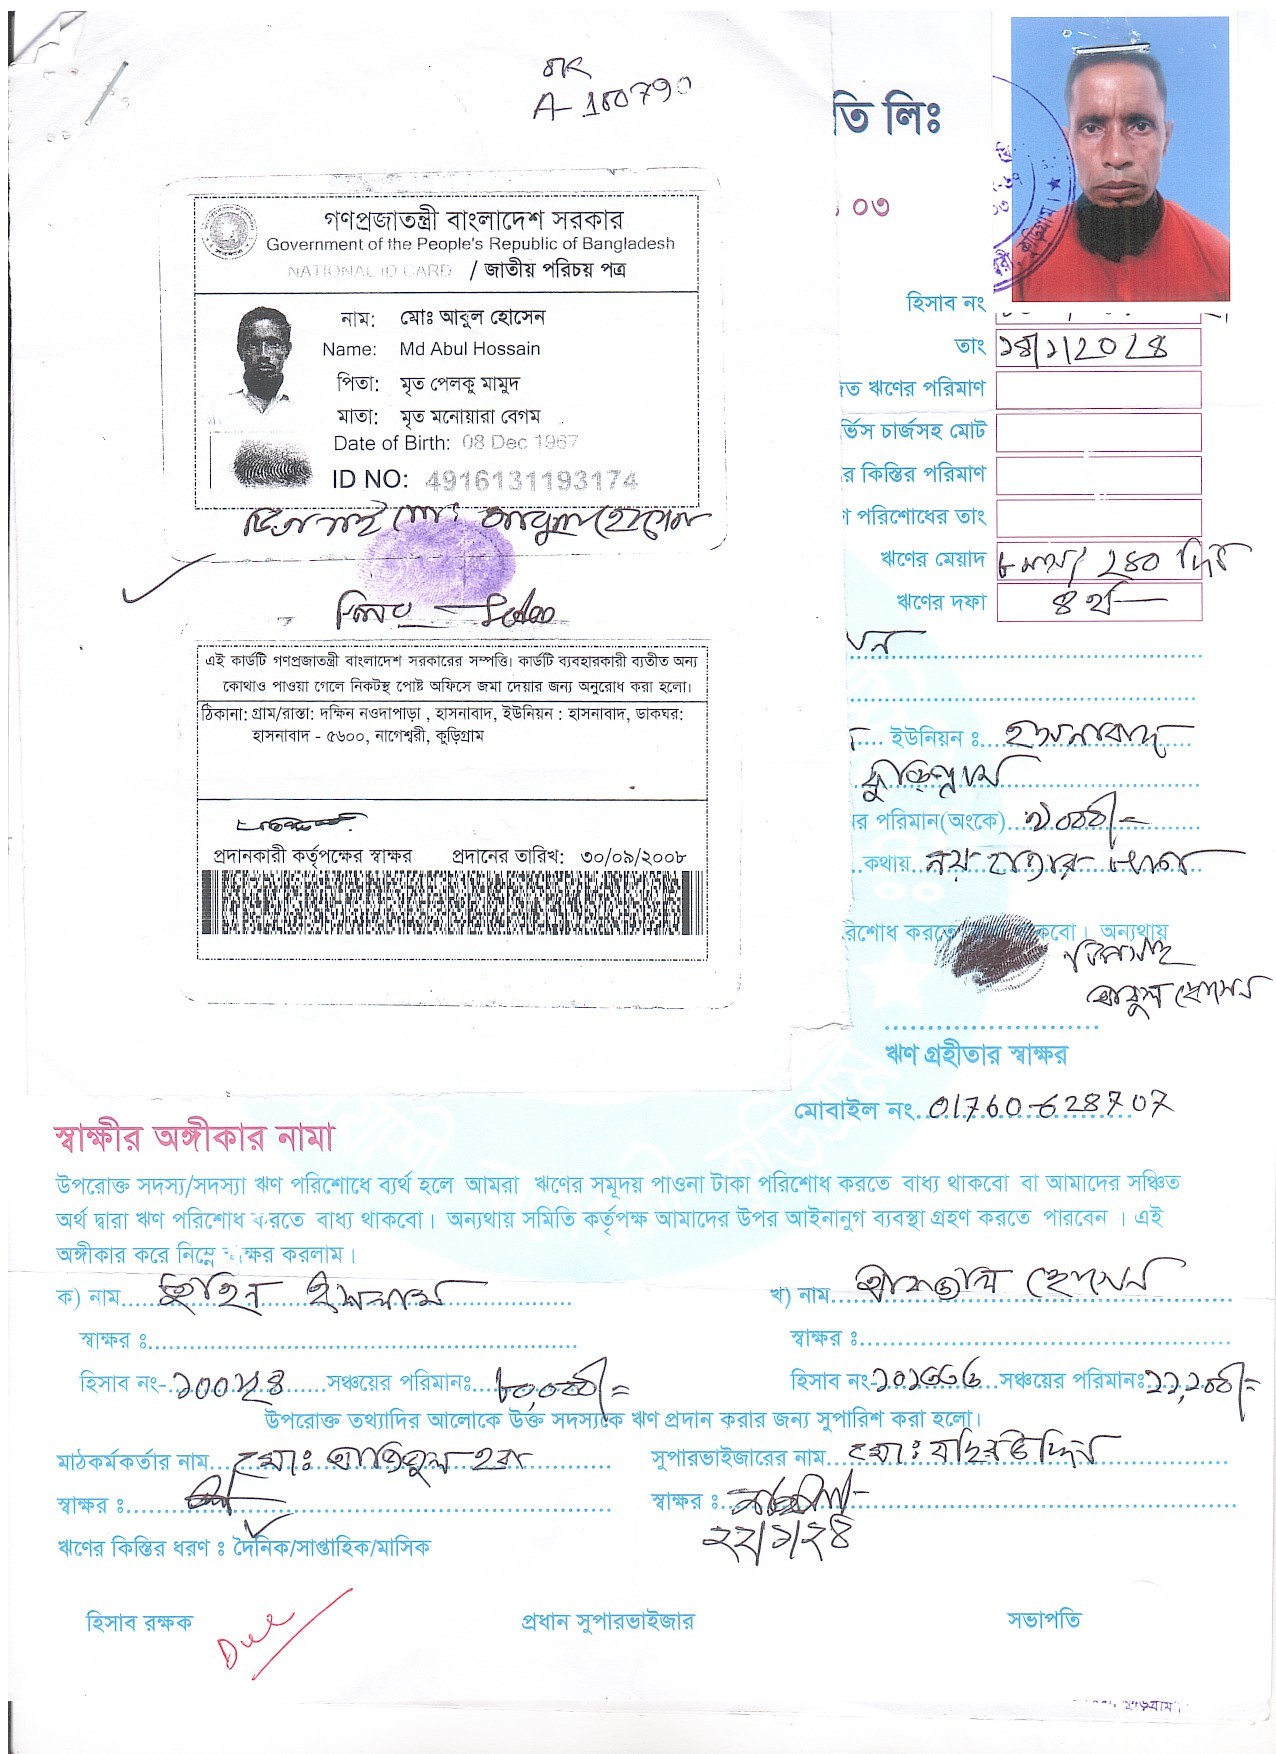 A- 180790
তি লিঃ
০৩
গণপ্রজাতন্ত্রী বাংলাদেশ সরকার
Government of the People's Republic of Bangladesh
NATIONAL ID CARD / জাতীয় পরিচয় পত্র
নাম: মোঃ আবুল হোসেন
Name: Md Abul Hossain
পিতা: মৃত পেলকু মামুদ
মাতা: মৃত মনোয়ারা বেগম
Date of Birth: 08 Dec 1967
ID NO: 4916131193174
মোঃ আবুল হোসেন
এই কার্ডটি গণপ্রজাতন্ত্রী বাংলাদেশ সরকারের সম্পত্তি। কার্ডটি ব্যবহারকারী ব্যতীত অন্য
কোথাও পাওয়া গেলে নিকটস্থ পোষ্ট অফিসে জমা দেয়ার জন্য অনুরোধ করা হলো।
ঠিকানা: গ্রাম/রাস্তা: দক্ষিন নওদাপাড়া , হাসনাবাদ, ইউনিয়ন : হাসনাবাদ, ডাকঘর:
হাসনাবাদ - ৫৬০০, নাগেশ্বরী, কুড়িগ্রাম
প্রদানকারী কর্তৃপক্ষের স্বাক্ষর প্রদানের তারিখ: ৩০/০৯/২০০৮
হিসাব নং
তাং
ঋণের পরিমাণ
চার্জসহ মোট
কিস্তির পরিমাণ
পরিশোধের তাং
ঋণের মেয়াদ ৮ মাস/ ২৪০ দিন
ঋণের দফা ৪র্থ
ইউনিয়ন ঃ হাসনাবাদ
কুড়িগ্রাম
পরিমান(অংকে) ৯০০০/=
কথায় নয় হাজার
করতে কবো। অন্যথায়
আবুল হোসেন
ঋণ গ্রহীতার স্বাক্ষর
মোবাইল নং 01760-628707
স্বাক্ষীর অঙ্গীকার নামা
উপরোক্ত সদস্য/সদস্যা ঋণ পরিশোধে ব্যর্থ হলে আমরা ঋণের সমূদয় পাওনা টাকা পরিশোধ করতে বাধ্য থাকবো বা আমাদের সঞ্চিত
অর্থ দ্বারা ঋণ পরিশোধ করতে বাধ্য থাকবো। অন্যথায় সমিতি কর্তৃপক্ষ আমাদের উপর আইনানুগ ব্যবস্থা গ্রহণ করতে পারবেন । এই
অঙ্গীকার করে নিম্নে স্বাক্ষর করলাম।
ক) নাম তুহিন ইসলাম খ) নাম হোসেন
স্বাক্ষর ঃ স্বাক্ষর ঃ
হিসাব নং- সঞ্চয়ের পরিমানঃ ৮০,০০০/= হিসাব নং-১০১৬৬৬ সঞ্চয়ের পরিমানঃ ১১,২০০/=
উপরোক্ত তথ্যাদির আলোকে উক্ত সদস্যকে ঋণ প্রদান করার জন্য সুপারিশ করা হলো।
মাঠকর্মকর্তার নাম মোঃ আতিকুল হক সুপারভাইজারের নাম মোঃ
স্বাক্ষর ঃ স্বাক্ষর ঃ
২২/১/২৪
ঋণের কিস্তির ধরণ ঃ দৈনিক/সাপ্তাহিক/মাসিক
হিসাব রক্ষক প্রধান সুপারভাইজার সভাপতি
Due